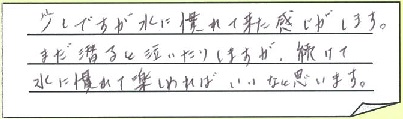 少しですが水に慣れて来た感じがします。
まだ潜ると泣いたりしますが、続けて
水に慣れて楽しめればいいなと思います。